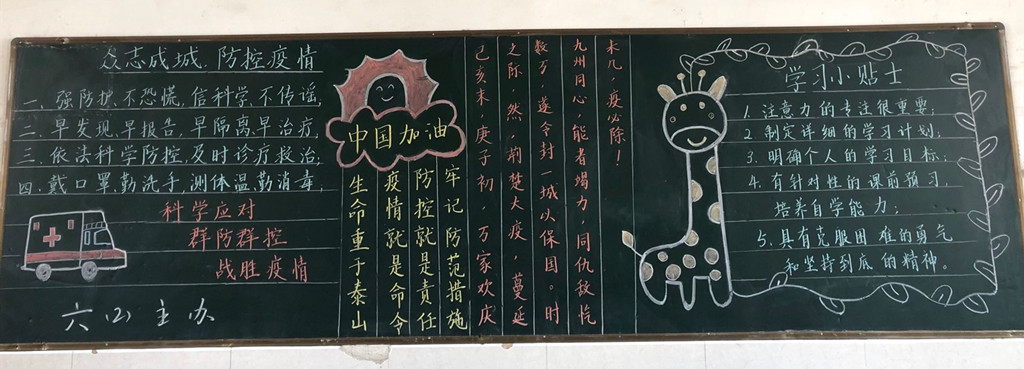 众志成城、防控疫情
一、强防护、不恐慌、信科学、不传谣;
二、早发现、早报告、早隔离早治疗;
三、依法科学防控、及时诊疗救治;
四、戴口罩勤洗手、测体温、勤消毒;
科学应对
群防群控
战胜疫情
六(2)主办
中国加油
生命重于泰山
疫情就是命令
防控就是责任
牢记防范措施
己亥末,庚子初,万家欢庆
之际,然,荆楚大疫,蔓延
数万,遂令封一城以保国。时
九州同心,能者竭力,同仇敌忾
未几,疫必除!
学习小贴士
1.注意力的专注很重要;
2.制定详细的学习计划;
3.明确个人的学习目标;
4.有针对性的课前预习,
培养自学能力;
5.具有克服困难的勇气
和坚持到底的精神。